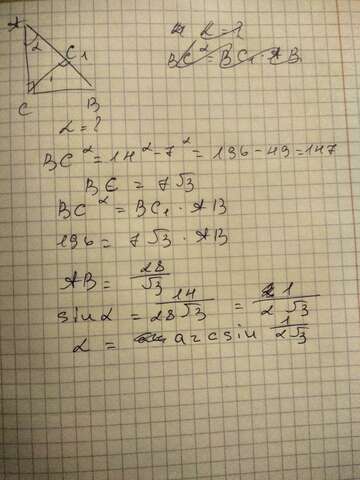 A
α
C 1
C
B
α = ?
BC² = BC₁ · AB
α = ?
BC² = 14² - 7² = 196 - 49 = 147
BC = 7√3
BC² = BC₁ · AB
196 = 7√3 · AB
AB = 28/√3
sin α = 14/28√3 = 1/2√3
α = arcsin 1/2√3